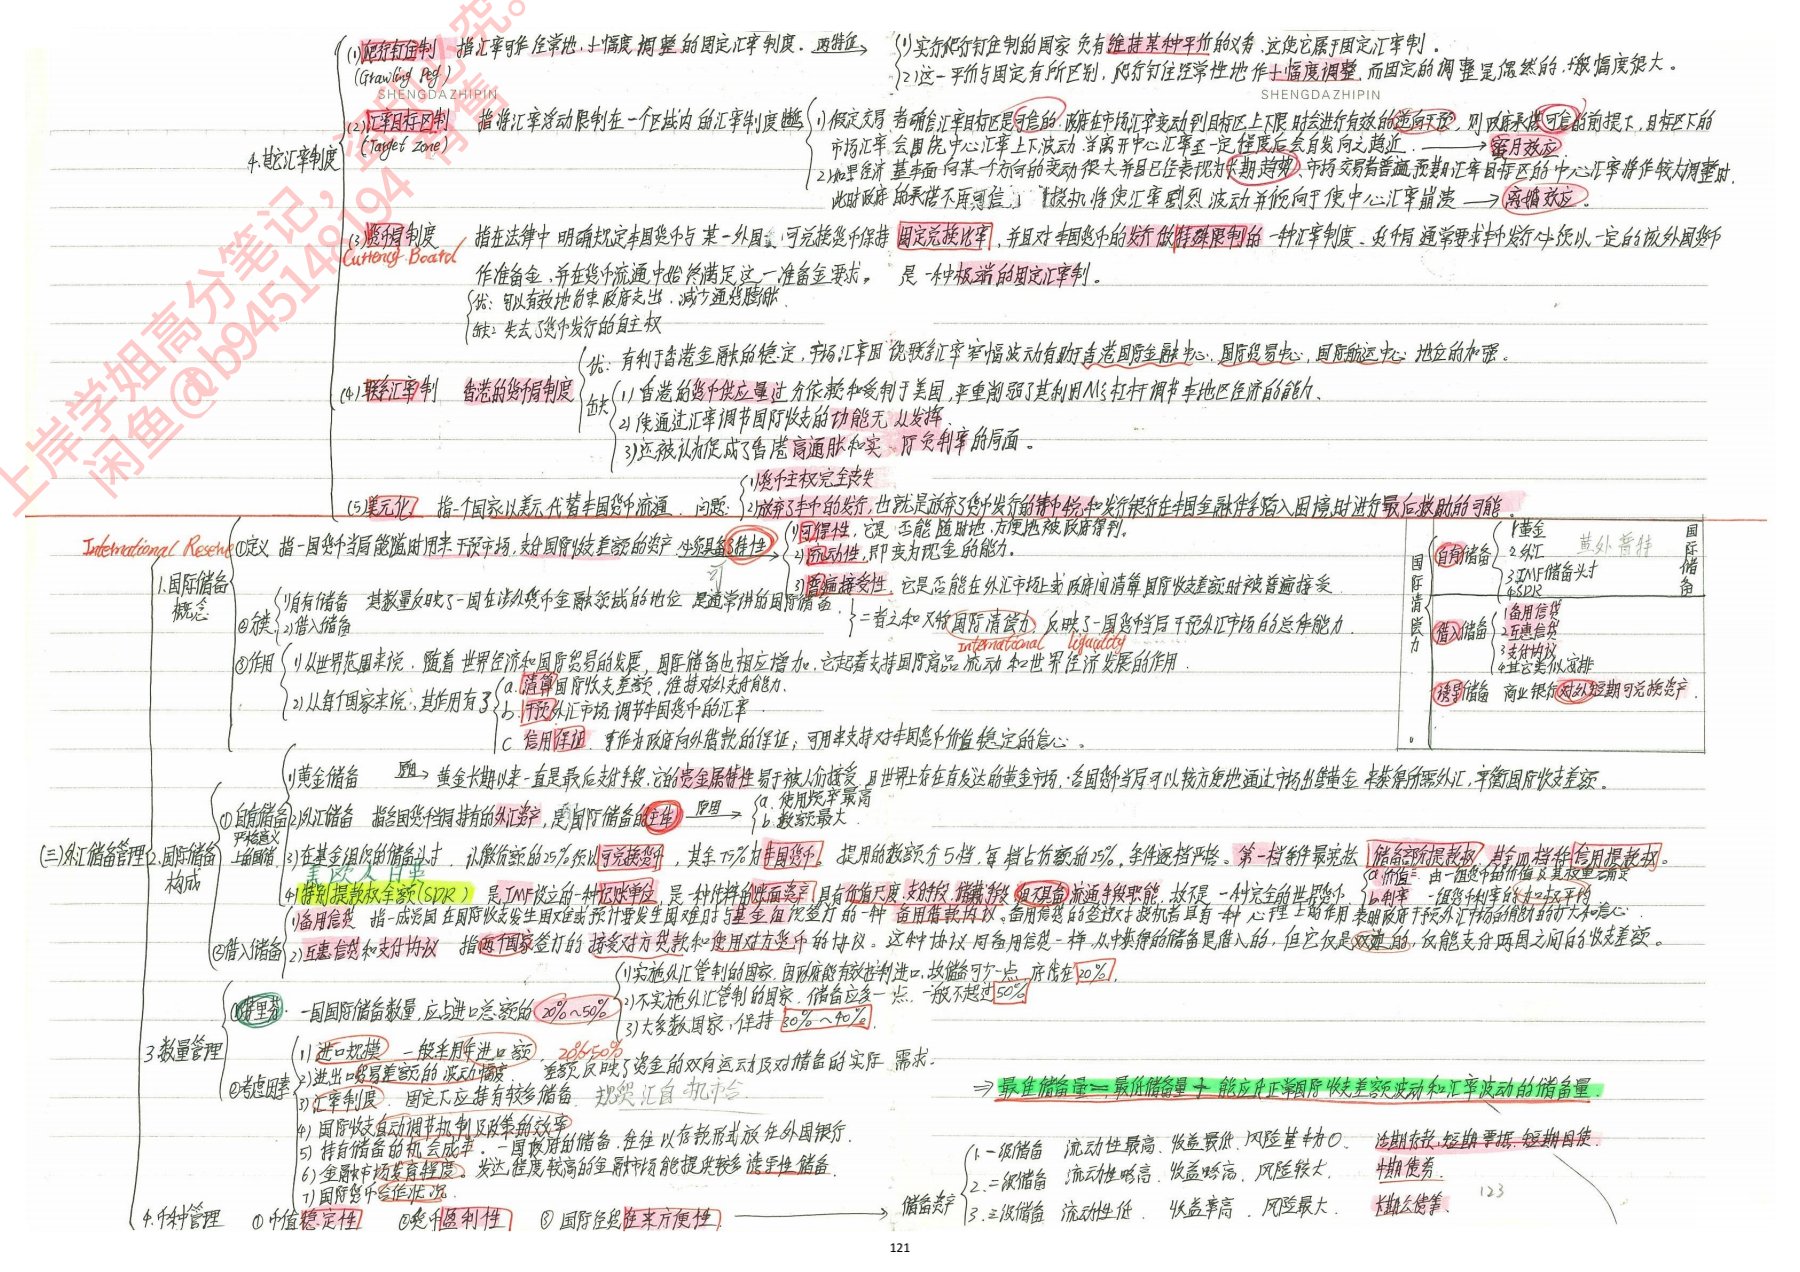 (1)爬行钉住制 指汇率可作经常地、小幅度调整的固定汇率制度. 两特征
(Crawling Peg)
1)实行爬行钉住制的国家负有维持某种平价的义务. 这使它属于固定汇率制.
2)这一平价与固定有所区别, 爬行钉住经常性地作小幅度调整, 而固定的调整是偶然的, 一般幅度很大.
SHENGDAZHIPIN
SHENGDAZHIPIN
4.其它汇率制度
(2)汇率目标区制 指将汇率浮动限制在一个区域内的汇率制度
(Target Zone)
1)假定交易者确信汇率目标区是可信的, 政府在市场汇率变动到目标区上下限时会进行有效的逆向干预, 则政府承诺可信的前提下, 目标区下的
市场汇率会围绕中心汇率上下波动. 当离开中心汇率至一定程度后会自发向之趋近. 蜜月效应
2)如果经济基本面向某一个方向的变动很大并且已经表现为长期趋势、市场交易者普遍预期汇率目标区的中心汇率将作较大调整时,
此时政府的承诺不再可信. 投机将使汇率剧烈波动并倾向于使中心汇率崩溃 离婚效应.
(3)货币局制度 指在法律中明确规定本国货币与某一外国可兑换货币保持固定兑换比率, 并且对本国货币的发行做特殊限制的一种汇率制度. 货币局通常要求本币发行必须以一定的该外国货币
Currency Board
作准备金, 并在货币流通中始终满足这一准备金要求. 是一种极端的固定汇率制.
优: 可以有效地约束政府支出. 减少通货膨胀
缺: 失去了货币发行的自主权
优: 有利于香港金融的稳定, 市场汇率围绕联系汇率窄幅波动有助于香港国际金融中心、国际贸易中心、国际航运中心地位的加强.
(4)联系汇率制 香港的货币局制度
缺
1)香港的货币供应量过分依赖和受制于美国, 严重削弱了其利用Ms杠杆调节本地区经济的能力.
2)使通过汇率调节国际收支的功能无从发挥
3)还被认为促成了香港高通胀和实际负利率的局面.
(5)美元化 指一个国家以美元代替本国货币流通. 问题:
1)货币主权完全丧失
2)放弃了本币的发行, 也就是放弃了货币发行的铸币税和发行银行在本国金融体系陷入困境时进行最后救助的可能.
International Reserve
(三)外汇储备管理
1.国际储备概念
①定义 指一国货币当局能随时用来干预市场, 支付国际收支差额的资产 必须具备3特性
1)可得性, 它是否能随时地、方便地被政府得到.
2)流动性, 即变为现金的能力.
3)普遍接受性. 它是否能在外汇市场上或政府间清算国际收支差额时被普遍接受.
②分类
1)自有储备 其数量反映了一国在涉外货币金融领域的地位 是通常讲的国际储备
2)借入储备
二者之和又称国际清偿力, 反映了一国货币当局干预外汇市场的总体能力.
International liquidity
③作用
1)从世界范围来说. 随着世界经济和国际贸易的发展, 国际储备也相应增加. 它起着支持国际商品流动和世界经济发展的作用.
2)从每个国家来说: 其作用有3
a. 清算国际收支差额, 维持对外支付能力.
b. 干预外汇市场, 调节本国货币的汇率
c. 信用保证. 可作为政府向外借款的保证; 可用来支持对本国货币价值稳定的信心.
国际清偿力
自有储备
1黄金
2.外汇 黄外普特
3.IMF储备头寸
4SDR
国际储备
借入储备
1备用信贷
2互惠信贷
3支付协议
4其它类似安排
诱导储备 商业银行对外短期可兑换资产
2.国际储备构成
①自有储备
严格意义上的国储
1)黄金储备 原因 黄金长期以来一直是最后支付手段, 它的贵金属特性易于被人们接受, 且世界上存在有发达的黄金市场. 各国货币当局可以较方便地通过市场出售黄金, 来获得所需外汇, 平衡国际收支差额.
2)外汇储备 指各国货币当局持有的外汇资产, 是国际储备的主体 原因
a. 使用频率最高
b. 数额最大
3)在基金组织的储备头寸. 认缴份额的25%须以可兑换货币, 其余75%为本国货币. 提用的数额分5档, 每档占份额的25%, 条件逐档严格. 第一档条件最宽松 储备部分提款权. 其余四档称信用提款权.
美欧人日英
4)特别提款权余额(SDR) 是IMF设立的一种记账单位, 是一种纯粹的账面资产. 具有价值尺度、支付手段、储藏手段 但不具备流通手段职能. 故不是一种完全的世界货币.
a.价值: 由一组货币币价值及其权重而确定
b.利率 一组货币利率的加权平均
②借入储备
1)备用信贷 指一成员国在国际收支发生困难或预计要发生困难时与基金组织签订的一种备用借款协议. 备用信贷的签订对投机者具有一种心理上的作用. 表明政府干预外汇市场的能力的扩大和信心.
2)互惠信贷和支付协议 指两个国家签订的接受对方货款和使用对方货币的协议. 这种协议同备用信贷一样, 从中获得的储备是借入的, 但它仅是双边的, 仅能支付两国之间的收支差额.
3.数量管理
①特里芬. 一国国际储备数量, 应占进口总额的20%~50%
1)实施外汇管制的国家, 因政府能有效控制进口, 故储备可少一点, 底线在20%.
2)不实施外汇管制的国家. 储备应多一点, 一般不超过50%
3)大多数国家, 保持30%~40%.
②考虑因素
1)进口规模 一般采用年进口额. 20%~50%
2)进出口贸易差额的波动幅度. 差额反映了资金的双向运动及对储备的实际需求.
3)汇率制度. 固定下应持有较多储备. 规贸汇自机市合
4)国际收支自动调节机制及政策的效率
5)持有储备的机会成本. 一国政府的储备, 往往以存款形式放在外国银行.
6)金融市场发育程度. 发达程度较高的金融市场能提供较多诱导性储备.
7)国际货币合作状况.
⇒ 最佳储备量=最低储备量+能应付正常国际收支差额波动和汇率波动的储备量.
4.币种管理 ①币值稳定性 ②货币盈利性 ③国际经贸往来方便性
储备资产
1.一级储备 流动性最高. 收益最低. 风险基本为0. 活期存款, 短期票据, 短期国债
2.二级储备 流动性略高. 收益略高. 风险较大. 中期债券.
3.三级储备 流动性低. 收益率高. 风险最大. 长期公债等.
123
121
上岸学姐高分笔记，盗印必究。
闲鱼@b945148194 有售